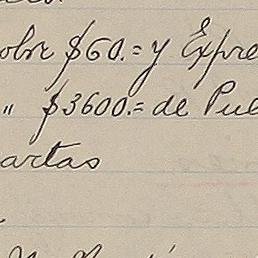 sobre $60.= y Expre
" $3600.= de Pue
artas